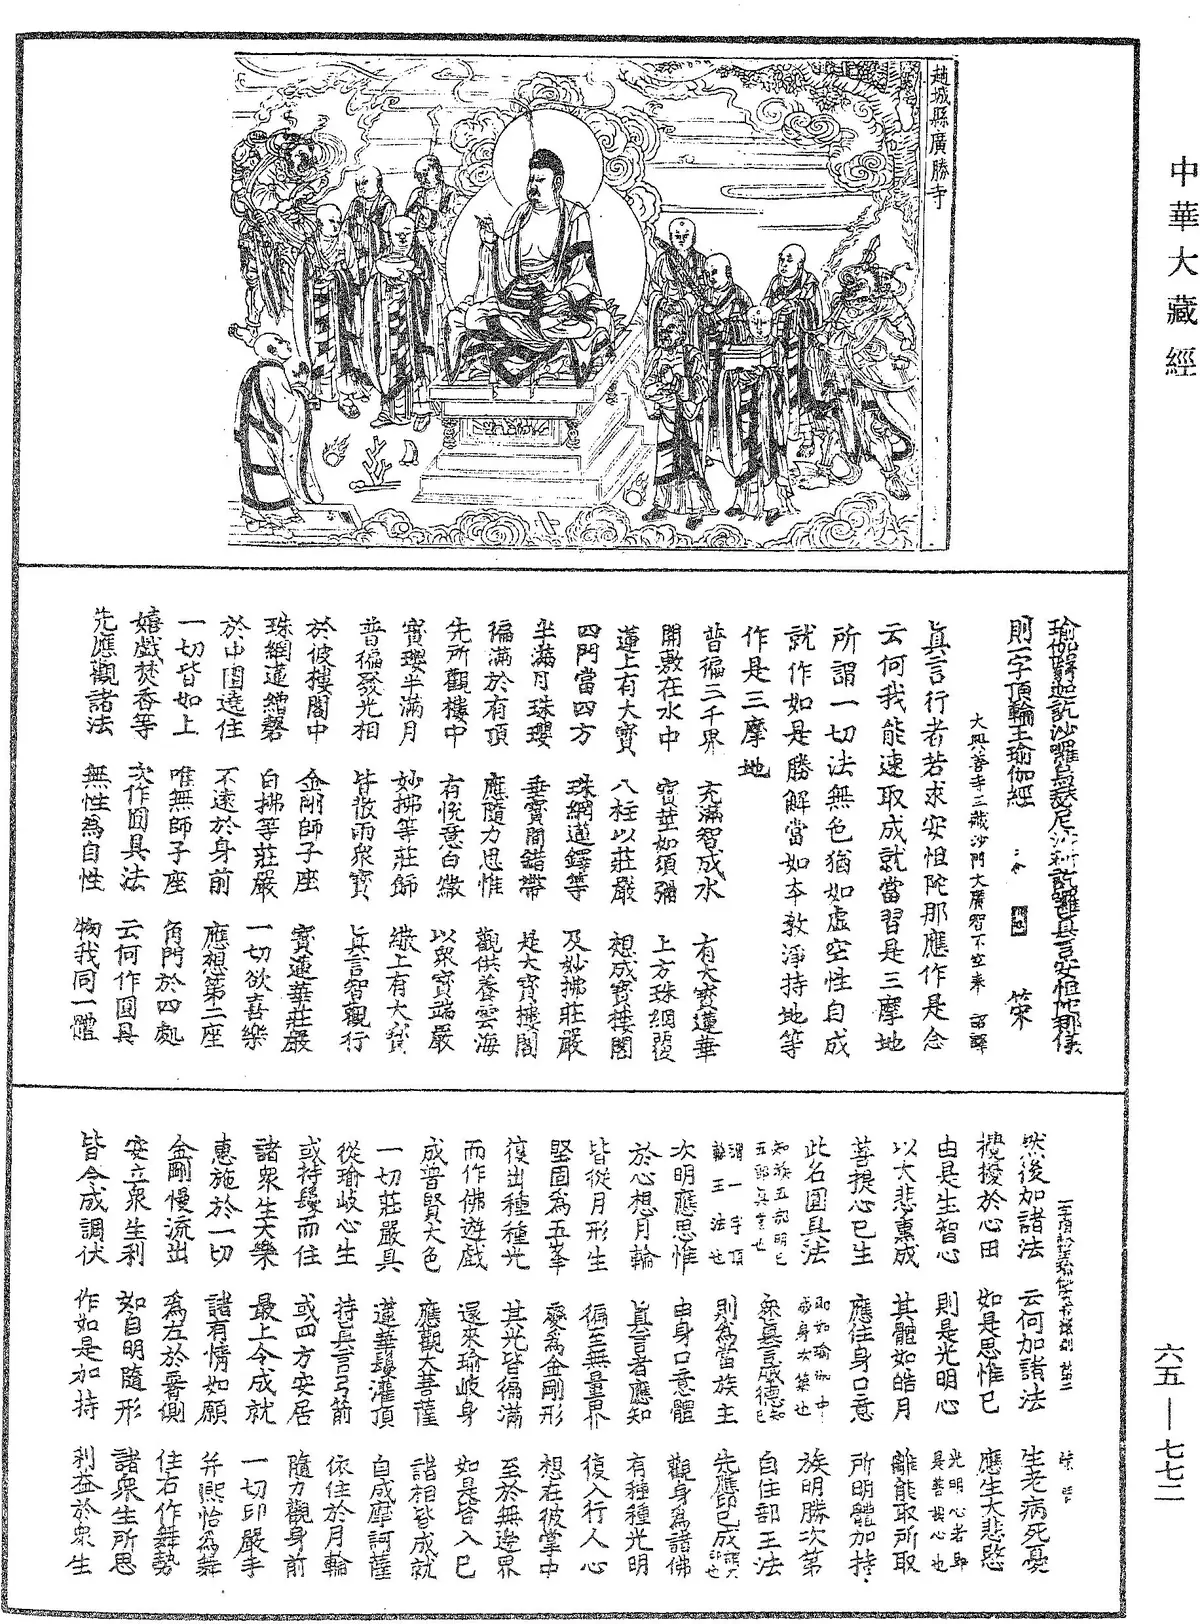 中華大藏經
趙城縣廣勝寺
則一字頂輪王瑜伽經
大興善寺三藏沙門大廣智不空奉 詔譯
真言行者若求安怛陀那應作是念
云何我能速取成就當習是三摩地
所謂一切法無色猶如虛空性自成
就作如是勝解當如本教淨持地等
作是三摩地
普徧三千界 充滿智成水 有大寶蓮華
開敷在水中 寶莖如須彌 上方珠網覆
蓮上有大寶 八柱以莊嚴 想成寶樓閣
四門當四方 珠網蓮鐸等 及妙拂莊嚴
半滿月珠瓔 垂寶間錯帶 是大寶樓閣
徧滿於有頂 應隨力思惟 觀供養雲海
先所觀樓中 有悅意白繖 以眾寶端嚴
寶瓔半滿月 妙拂等莊飾 繖上有大寶
普徧發光相 皆散雨眾寶 真言智觀行
於彼樓閣中 金剛師子座 寶蓮華莊嚴
珠網蓮繒磬 白拂等莊嚴 一切欲喜樂
於中圍遶住 不遠於身前 應想第二座
一切皆如上 唯無師子座 角門於四處
嬉戲焚香等 次作圓具法 云何作圓具
先應觀諸法 無性為自性 物我同一體
然後加諸法 云何加諸法 生老病死憂
攪擾於心田 如是思惟已 應生大悲愍
由是生智心 則是光明心 光明心者即是菩提心也
以大悲熏成 其體如皓月 離能取所取
菩提心已生 應住身口意 所明體加持
此名圓具法 族明勝次第
自住部王法
謂一字頂輪王法也 則為當族主 先應印已成
次明應思惟 由身口意體 觀身為諸佛
於心想月輪 真言者應知 有種種光明
皆從月形生 徧至無量界 復入行人心
堅固為五峯 變為金剛形 想在彼掌中
復出種種光 其光皆徧滿 至於無邊界
而作佛遊戲 還來瑜岐身 如是皆入已
成普賢大色 應觀大菩薩 諸相皆成就
一切莊嚴具 蓮華鬘灌頂 自成摩訶薩
從瑜岐心生 持真言弓箭 依住於月輪
或持鬘而住 或四方安居 隨力觀身前
諸眾生大樂 最上令成就 一切印嚴手
惠施於一切 諸有情如願 并熙怡為舞
金剛慢流出 為左於脅側 住右作舞勢
安立眾生利 如自明隨形 諸眾生所思
皆令成調伏 作如是加持 利益於眾生
六五—七七二